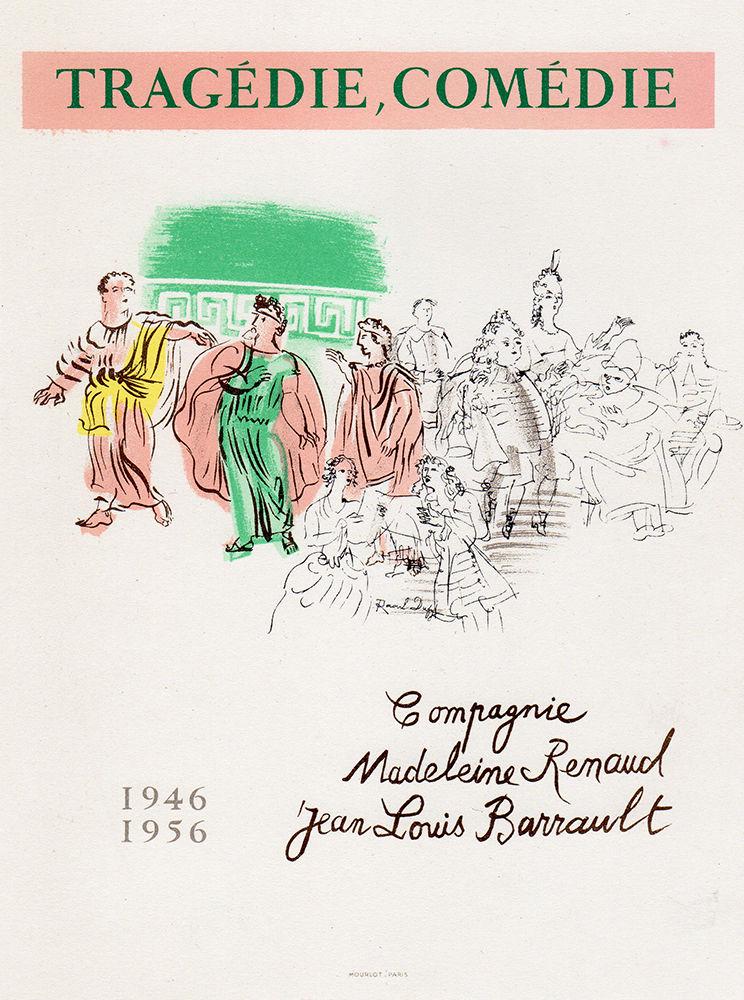 TRAGÉDIE, COMÉDIE
Raoul Dufy
Compagnie
Madeleine Renaud
Jean Louis Barrault
1946
1956
MOURLOT. PARIS